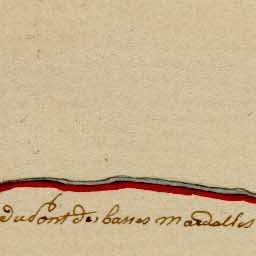 du pont de basses mardalles